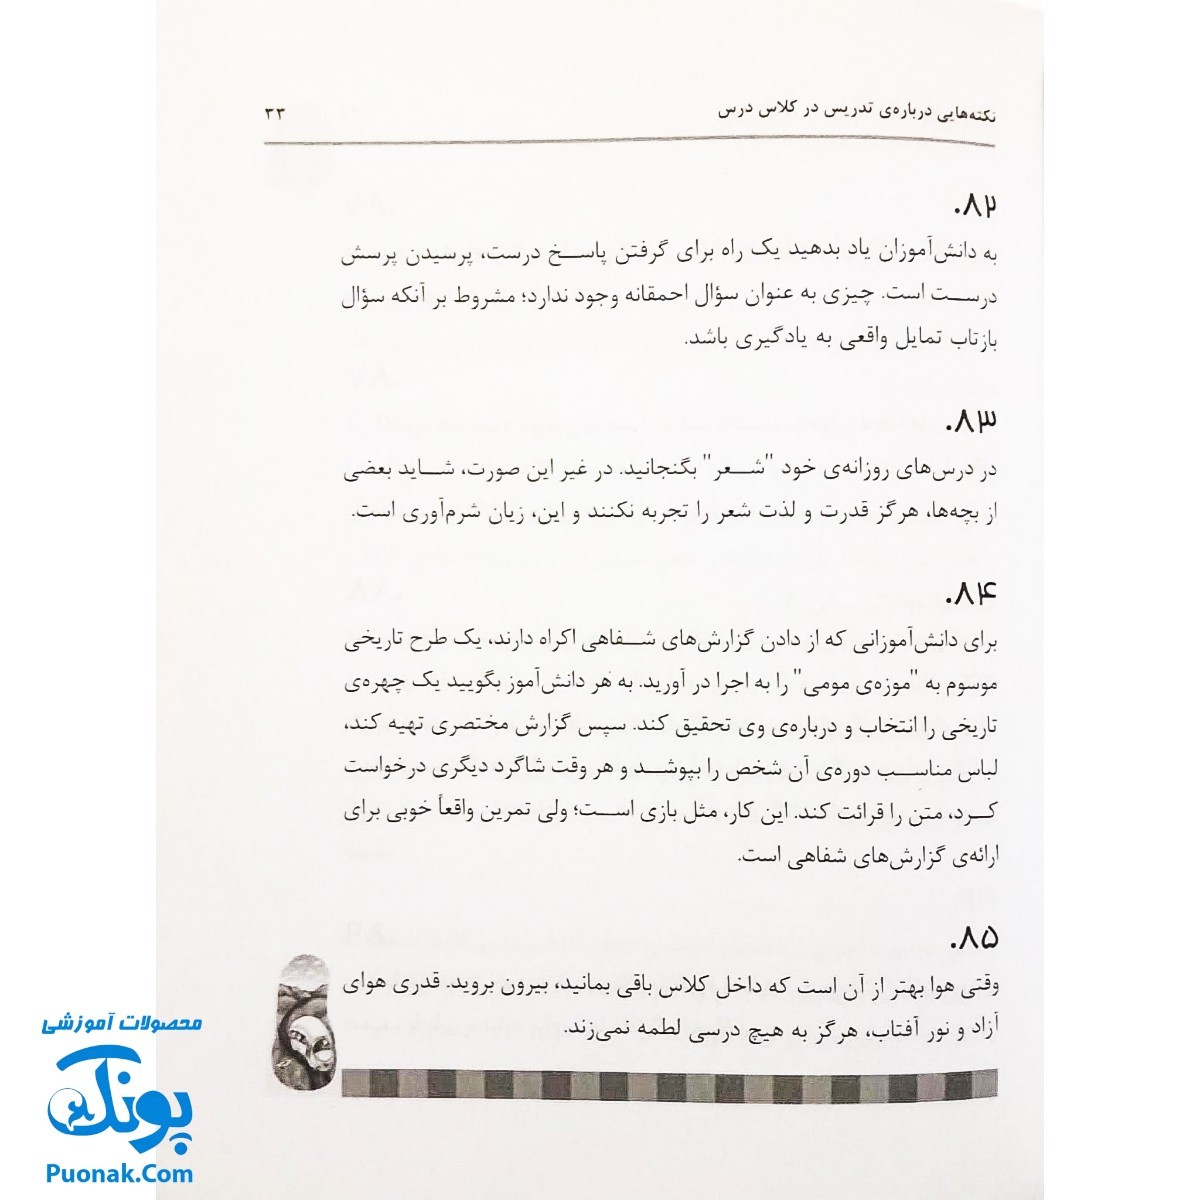 نکته‌هایی درباره‌ی تدریس در کلاس درس ۳۳
۸۲.
به دانش‌آموزان یاد بدهید یک راه برای گرفتن پاسخ درست، پرسیدن پرسش
درست است. چیزی به عنوان سؤال احمقانه وجود ندارد؛ مشروط بر آنکه سؤال
بازتاب تمایل واقعی به یادگیری باشد.
۸۳.
در درس‌های روزانه‌ی خود "شعر" بگنجانید. در غیر این صورت، شاید بعضی
از بچه‌ها، هرگز قدرت و لذت شعر را تجربه نکنند و این، زیان شرم‌آوری است.
۸۴.
برای دانش‌آموزانی که از دادن گزارش‌های شفاهی اکراه دارند، یک طرح تاریخی
موسوم به "موزه‌ی مومی" را به اجرا در آورید. به هر دانش‌آموز بگویید یک چهره‌ی
تاریخی را انتخاب و درباره‌ی وی تحقیق کند. سپس گزارش مختصری تهیه کند،
لباس مناسبِ دوره‌ی آن شخص را بپوشد و هر وقت شاگرد دیگری درخواست
کرد، متن را قرائت کند. این کار، مثل بازی است؛ ولی تمرین واقعاً خوبی برای
ارائه‌ی گزارش‌های شفاهی است.
۸۵.
وقتی هوا بهتر از آن است که داخل کلاس باقی بمانید، بیرون بروید. قدری هوای
آزاد و نور آفتاب، هرگز به هیچ درسی لطمه نمی‌زند.
محصولات آموزشی
پونک
Puonak.Com